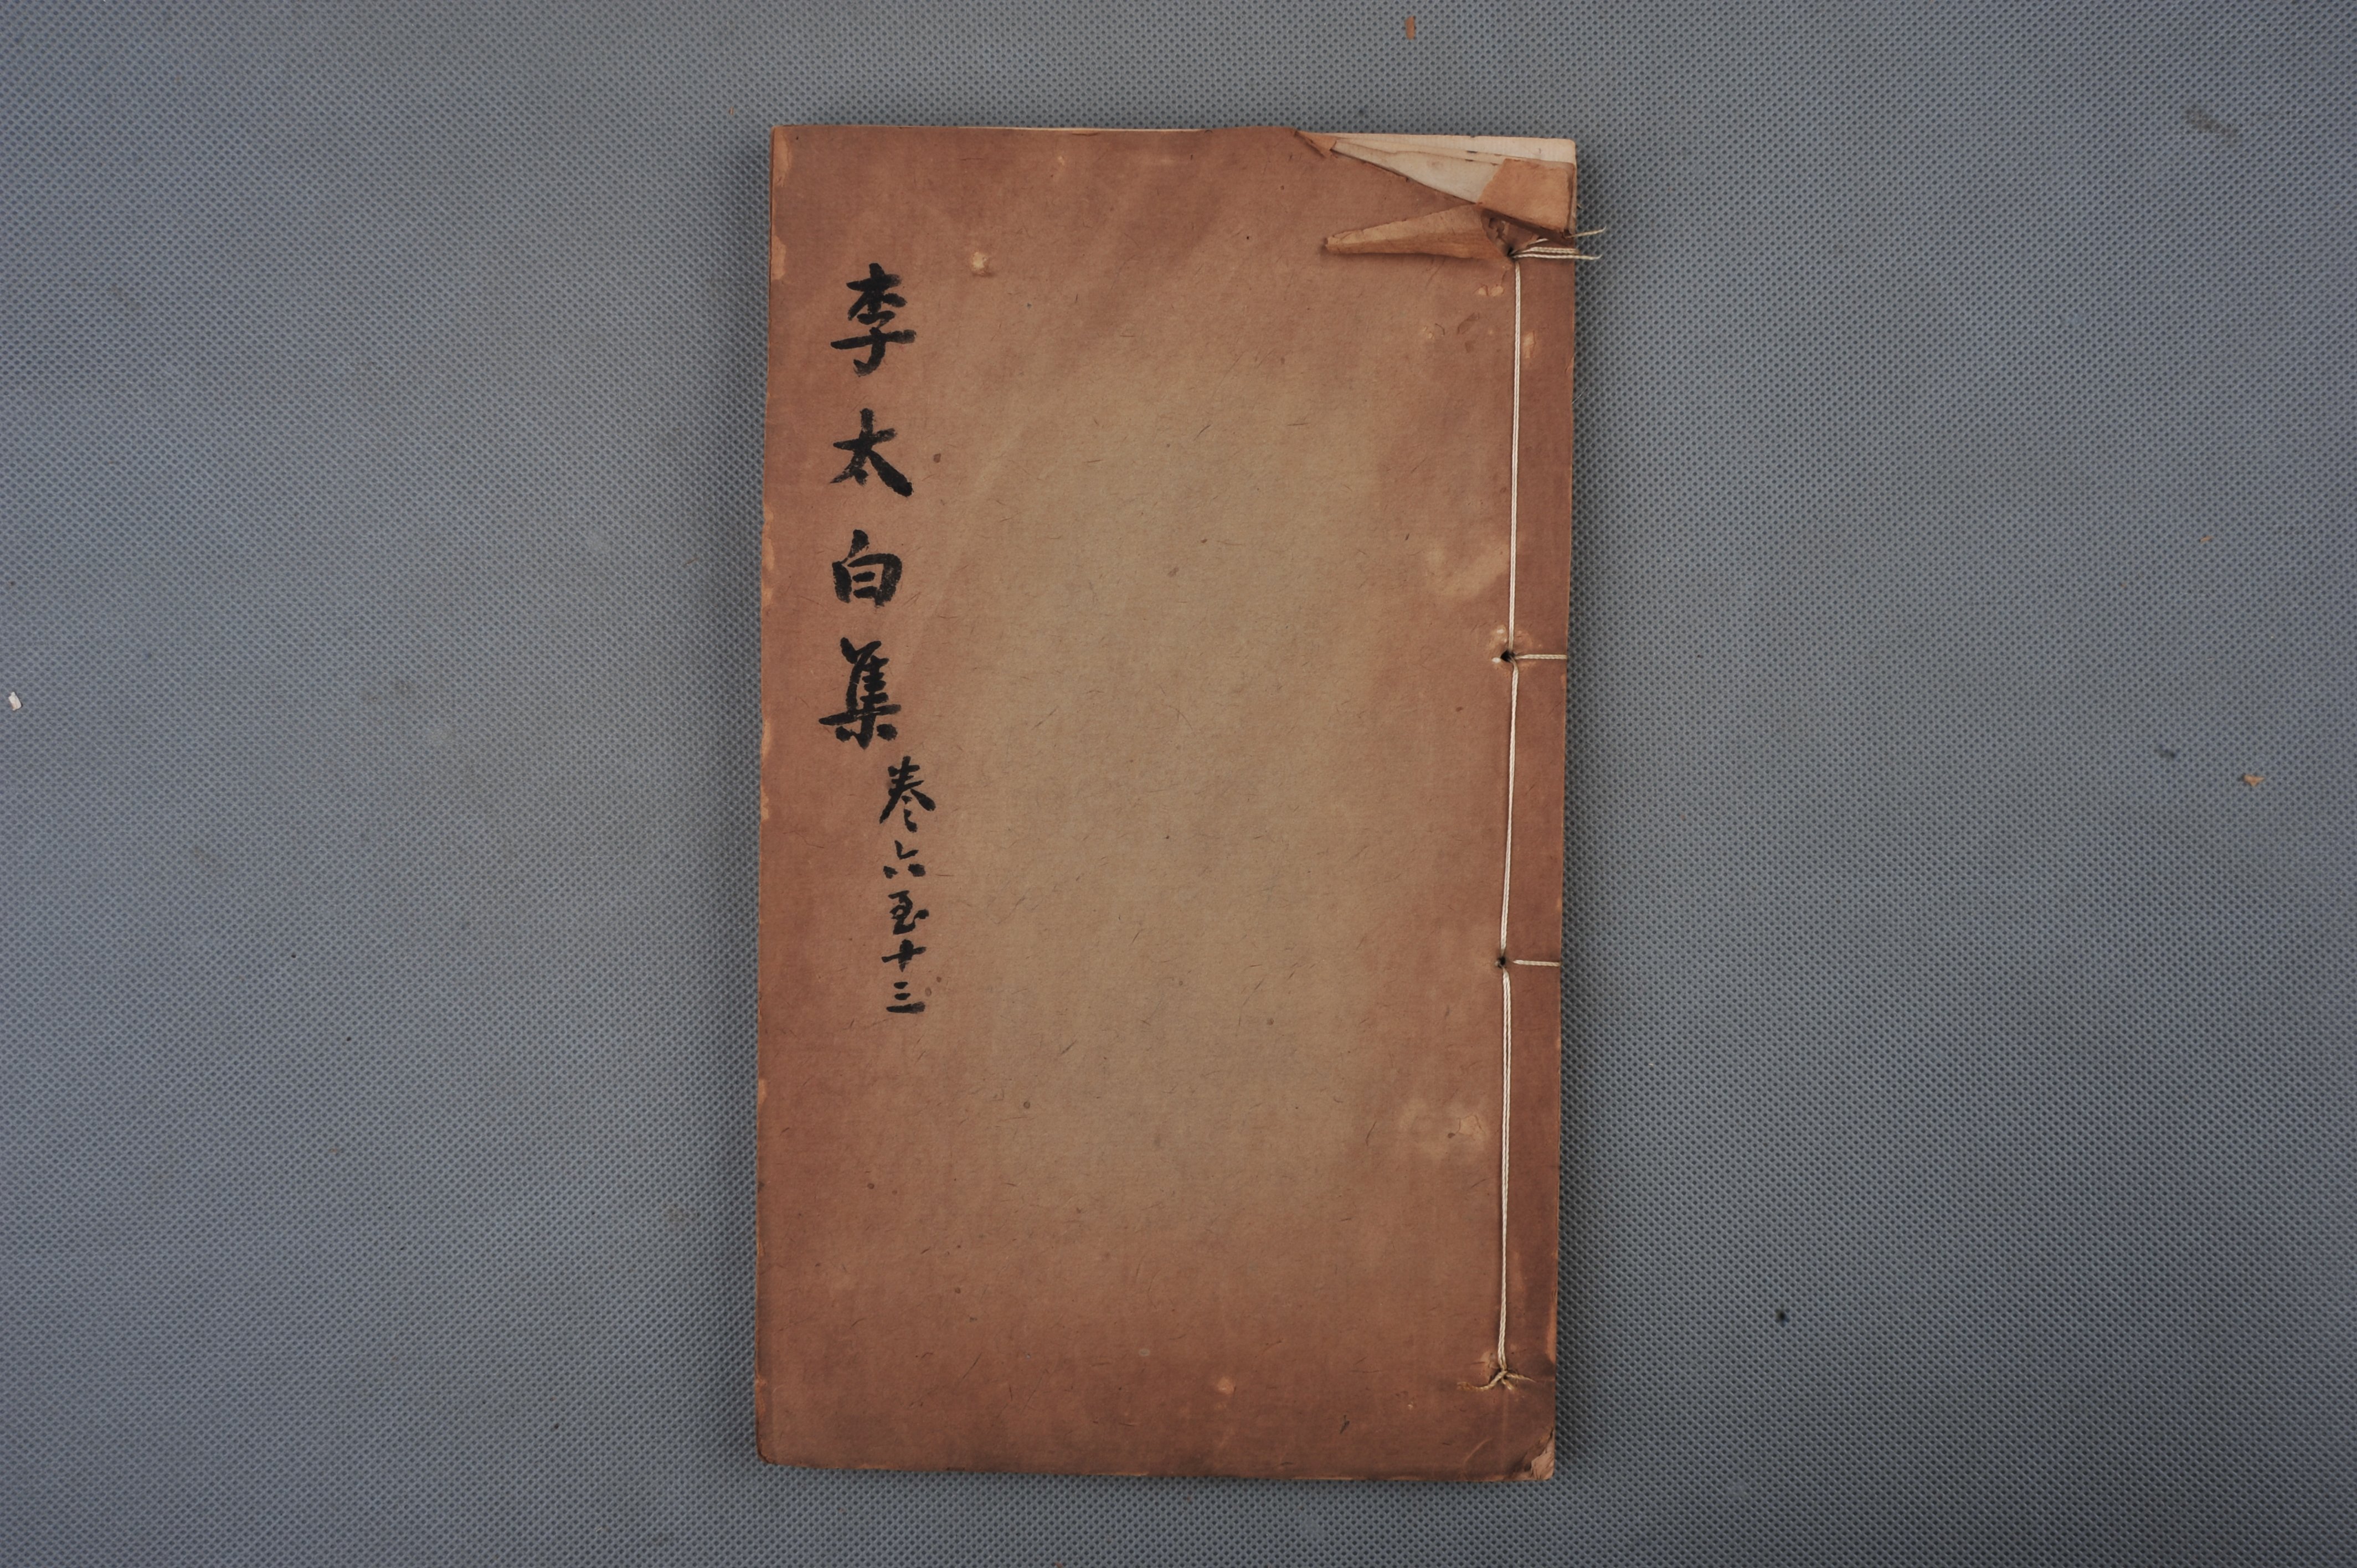 李太白集
卷六至十三